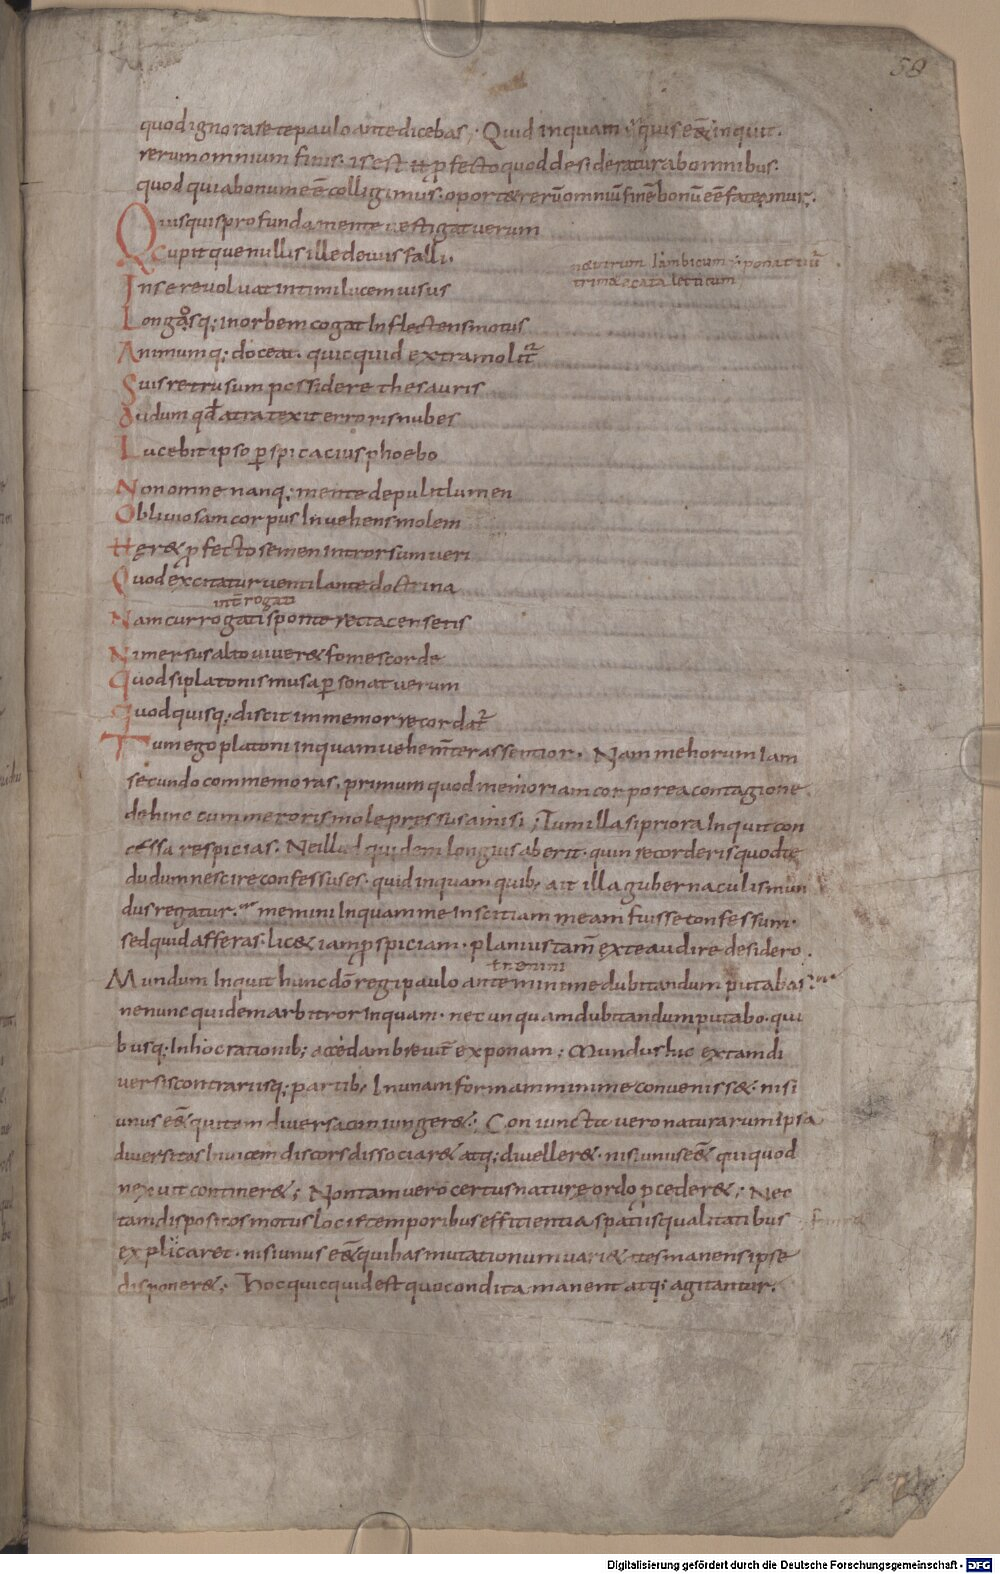 58
quod ignorare te paulo ante dicebas; Quid inquam; quis e&̄ inquit.
rerum omnium finis. is est n̄ ꝓfecto quod desideratur ab omnibus.
quod quia bonum eē colligimus. oport& rerū omniū finē bonū eē fateamur;
Quisquis profunda mente vestigat verum
Cupitque nullis ille deviis falli.
metrum iambicum
trim& catalecticum
In se revolvat intimi lucem visus
Longosq; in orbem cogat inflectens motus
Animumq; doceat. quicquid extra molit᷑
Suis retrusum possidere thesauris
dudum qđ atra texit erroris nubes
Lucebit ipso ꝑspicacius phoebo
Non omne nanq; mente depulit lumen
Obliviosam corpus invehens molem
Hęr& ꝓfecto semen introrsum veri
Quod excitatur ventilante doctrina
int̄rogati
Nam cur rogati sponte recta censetis
Ni mersus alto viver& fomes corde
Quod si platonis musa ꝑsonat verum
Quod quisq; discit immemor recordat᷑
Tum ego platoni inquam vehem̄ter assentior. Nam me horum iam
secundo commemoras. primum quod memoriam corporea contagione
dehinc cum meroris mole pressus amisi; Tum illa si priora inquit con
cessa respicias. Ne illud quidem longius aberit. quin recorderis quod te
dudum nescire confessus es. quid inquam quib; ait illa gubernaculis mun
dus regatur. memini inquam me inscitiam meam fuisse confessum.
sed quid afferas. lic& iam ꝓspiciam. planius tam̄ ex te audire desidero.
Mundum inquit hunc dō regi paulo ante minime dubitandum putabas;
ne nunc quidem arbitror inquam. nec unquam dubitandum putabo. qui
busq; in hoc rationib; accedam brevit̄ exponam; Mundus hic ex tam di
versis contrariisq; partib; In unam formam minime conveniss&. nisi
unus e&̄ qui tam diversa coniunger&; Coniuncta vero naturarum ipsa
diversitas invicem discors dissociar& atq; diveller&. nisi unus e&̄ qui quod
nexuit continer&; Non tam vero certus naturę ordo ꝓceder&; Nec
tam dispositos motus locis temporibus efficientia spatiis qualitatibus
explicaret. nisi unus e&̄ qui has mutationum variet&es manens ipse
disponer&; Hoc quicquid est quo condita manent atq; agitantur.
Digitalisierung gefördert durch die Deutsche Forschungsgemeinschaft - DFG